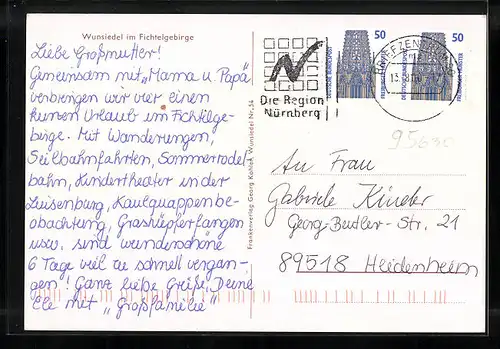 Wunsiedel im Fichtelgebirge
Liebe Großmutter!
Gemeinsam mit „Mama u. Papa"
verbringen wir vier einen
kurzen Urlaub im Fichtelge-
birge. Mit Wanderungen,
Seilbahnfahrten, Sommerrodel
bahn, Kindertheater in der
Luisenburg, Kaulquappenbe-
obachtung, Grashüpferfangen
usw. sind wunderschöne
6 Tage viel zu schnell vergan-
gen! Ganz liebe Grüße, Deine
Ele mit „Großfamilie"
Frankenverlag Georg Wunsiedel Nr. 54
Die Region
Nürnberg
BRIEFZENTRUM
50
DEUTSCHE BUNDESPOST
FREIBURGER MÜNSTER
50
DEUTSCHE BUNDESPOST
FREIBURGER MÜNSTER
95630
An Frau
Gabriele Kinder
Georg-Beutler-Str. 21
89518 Heidenheim